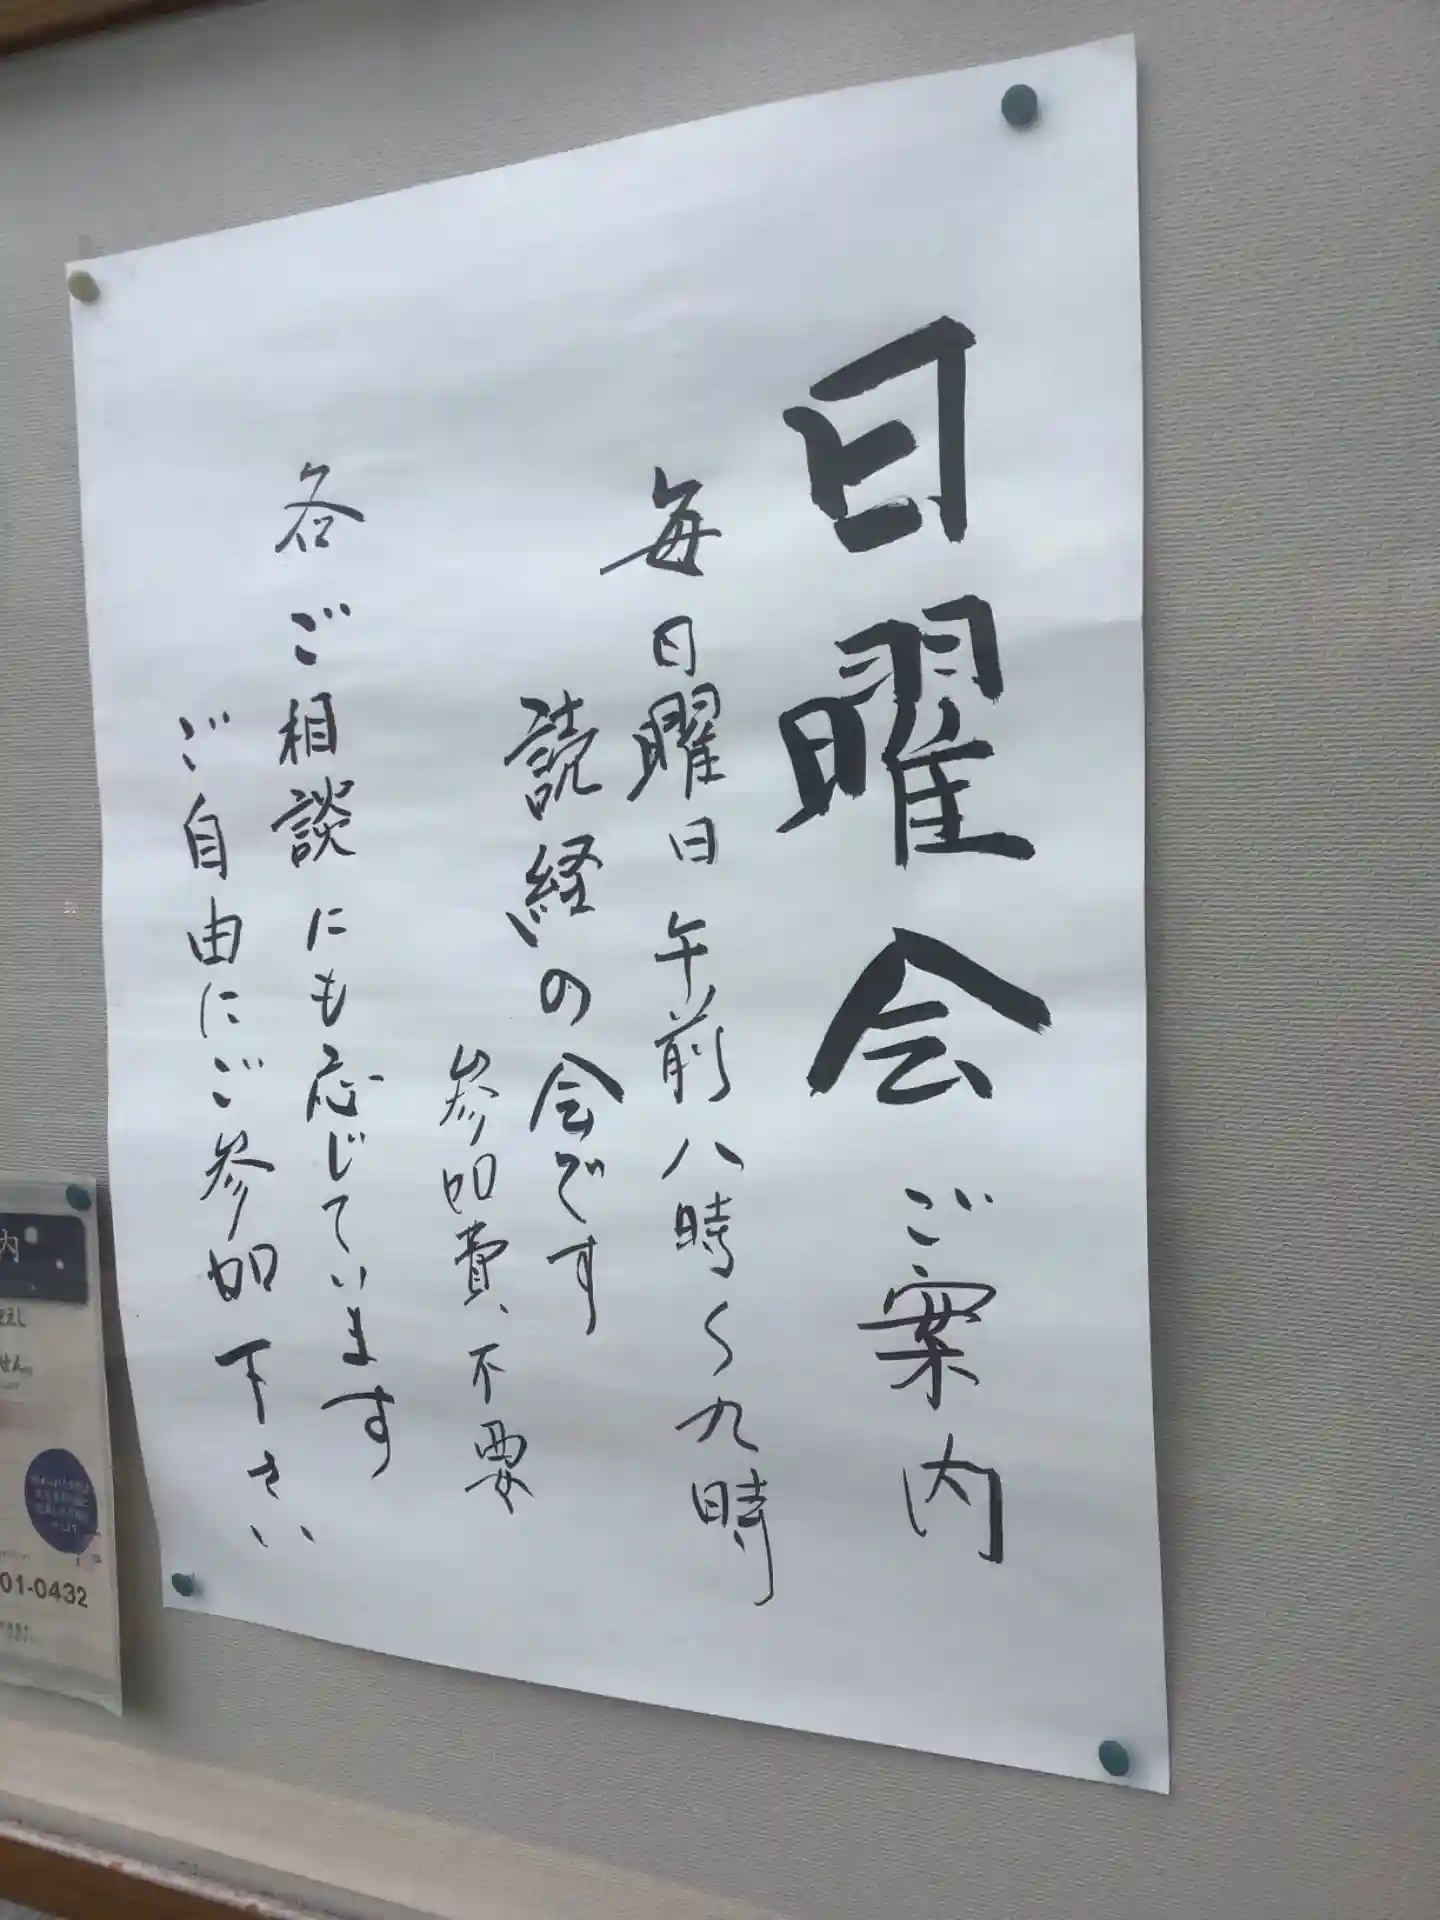 日曜会ご案内
毎日曜日午前八時〜九時
読経の会です
参加費、不要
各ご相談にも応じています
ご自由にご参加下さい
内
せん。
01-0432